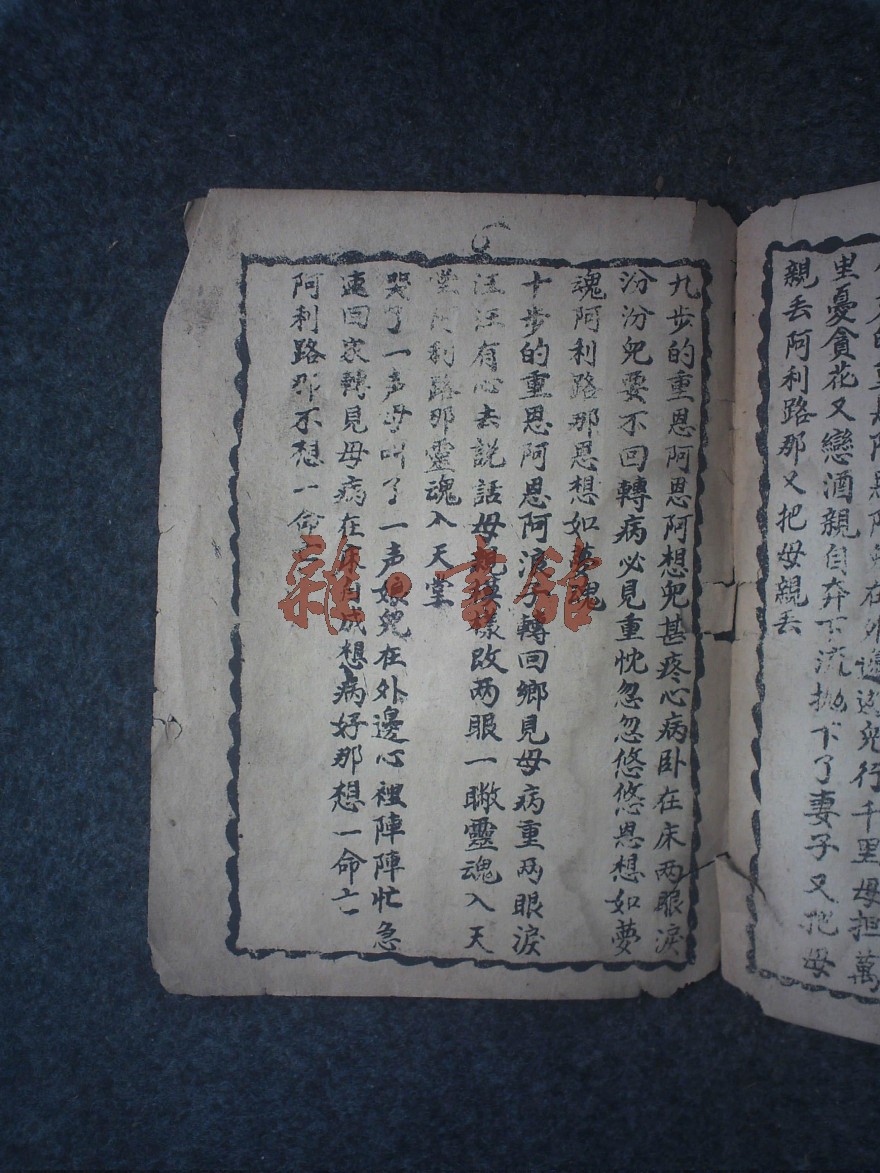 的重恩阿恩阿在外邊兒行千里母担萬
里憂貪花又戀酒親自奔下流抛下了妻子又把母
親丢阿利路那又把母親丢
九步的重恩阿恩阿想兒甚疼心病卧在床两眼淚
汾汾兒要不回轉病必見重忱忽忽悠悠恩想如夢
魂阿利路那恩想如夢魂
十步的重恩阿恩阿浪子轉回鄉見母病重两眼淚
汪汪有心去説話母親模樣改两眼一瞅靈魂入天
堂阿利路那靈魂入天堂
哭了一声母叫了一声娘兒在外邊心裡陣陣忙急
速回家轉見母病在床自成想病好那想一命亡
阿利路那不想一命亡
雜·書舘